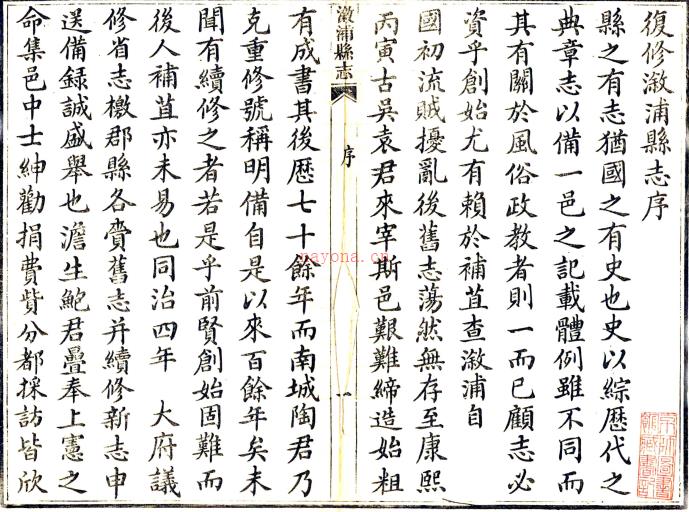 復修溆浦縣志序
縣之有志猶國之有史也史以綜歷代之
典章志以備一邑之記載體例雖不同而
其有關於風俗政教者則一而已顧志必
資乎創始尤有賴於補苴查溆浦自
國初流賊擾亂後舊志蕩然無存至康熙
丙寅古吳袁君來宰斯邑艱難締造始粗
溆浦縣志
序
一
有成書其後歷七十餘年而南城陶君乃
克重修號稱明備自是以來百餘年矣未
聞有續修之者若是乎前賢創始固難而
後人補苴亦未易也同治四年 大府議
修省志檄郡縣各賫舊志并續修新志申
送備錄誠盛舉也澹生鮑君疊奉上憲之
命集邑中士紳勸捐費貲分都採訪皆欣
nayona.cn